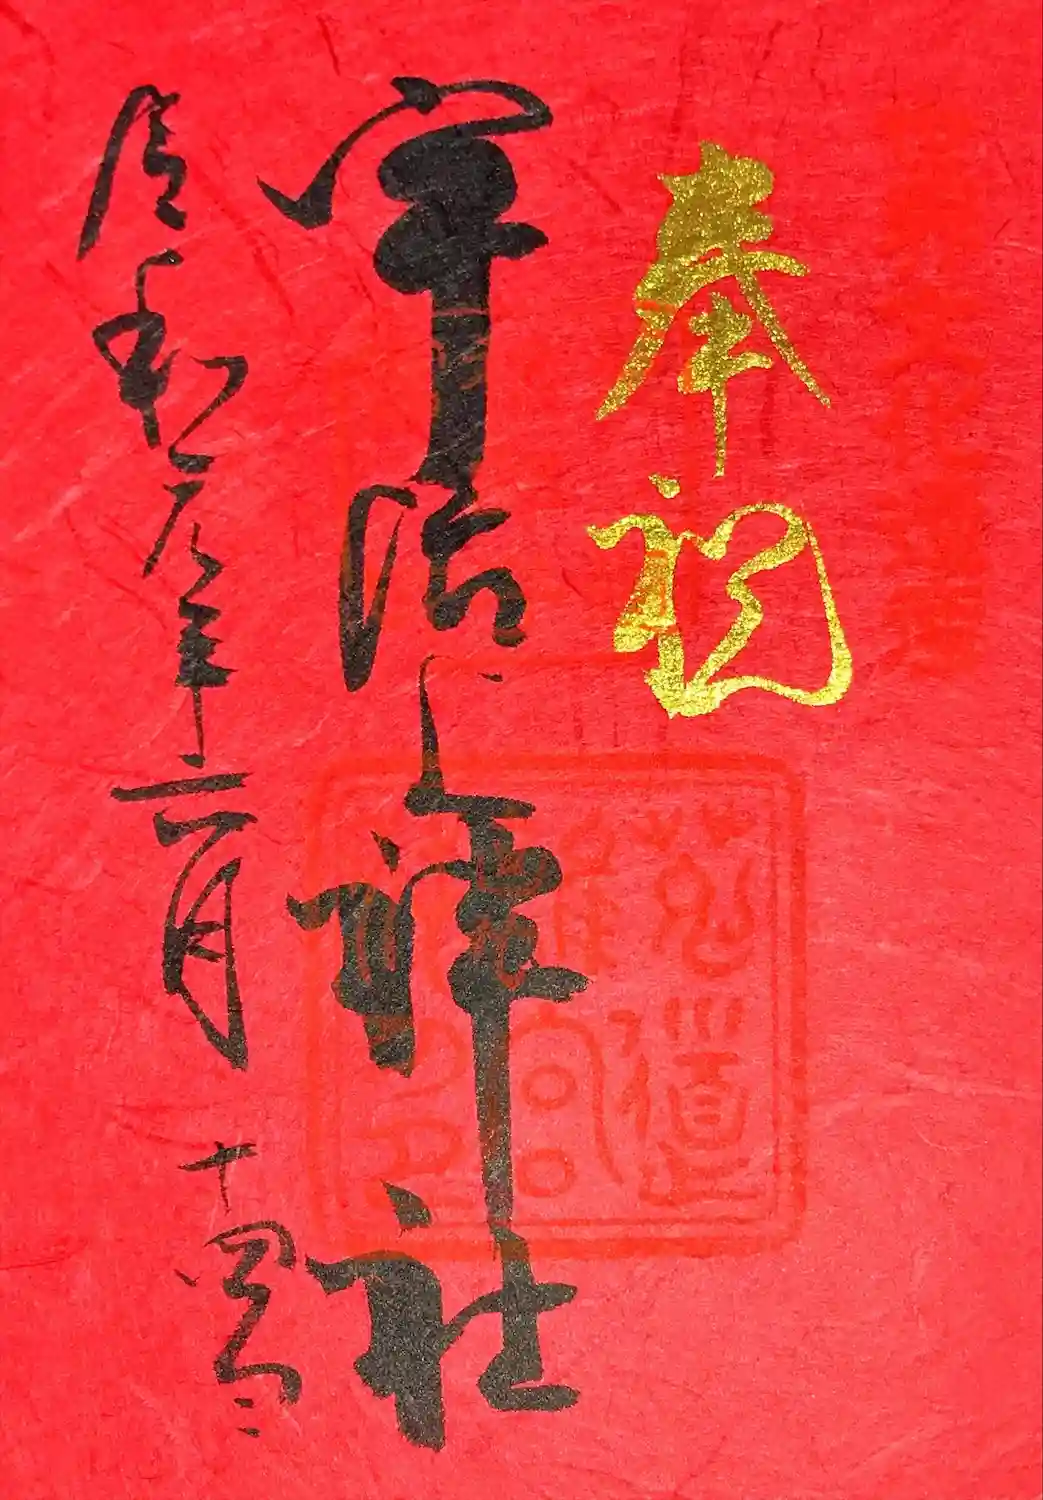 奉祝
宇治神社
令和元年十一月十四日